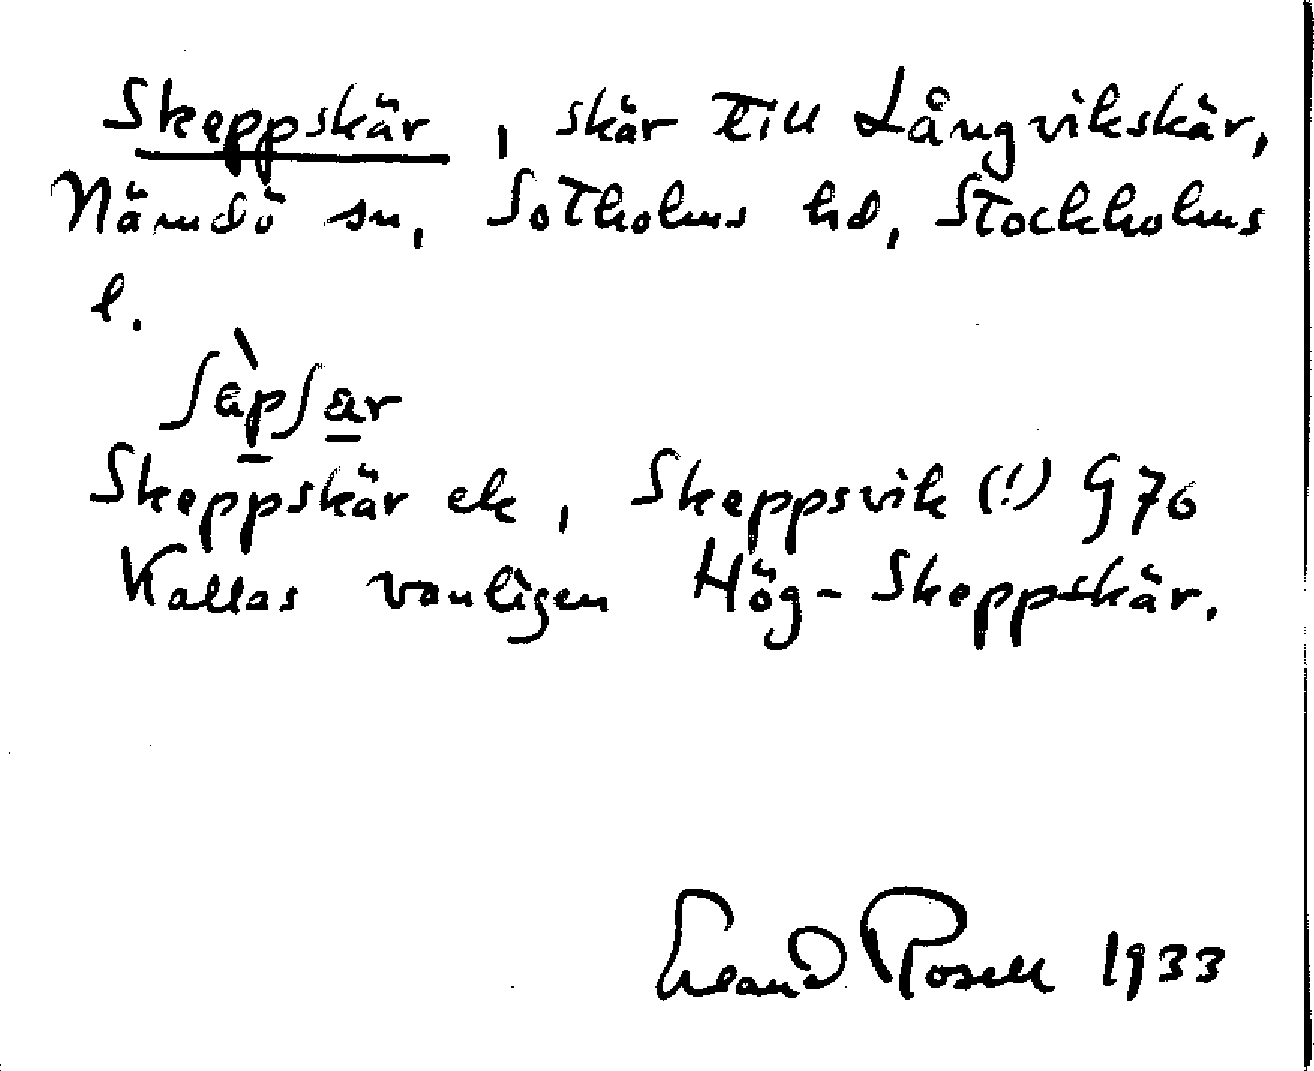 Skeppskär, skär till Långvikskär,
Nämdö sn, Sotholms hd, Stockholms
l.
ʃɐ̀pʃar
Skeppskär ek, Skeppsvik (!) G 76
Kallas vanligen Hög-Skeppskär.
Erland Rosell 1933